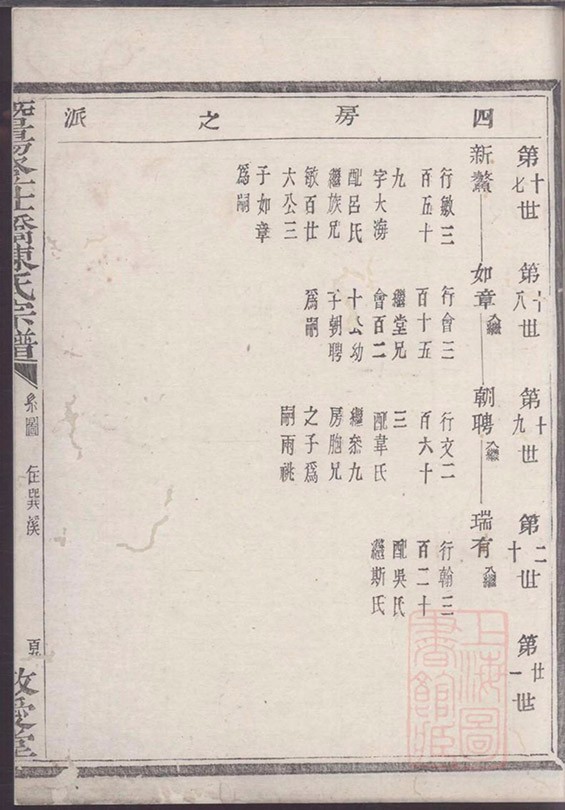 四房之派
第十七世
第十八世
第十九世
第二十世
第廿一世
新鰲
如章入繼
朝聘入繼
瑞有入繼
行敏三
百五十
九
字大海
配呂氏
繼族兄
敏百廿
大公三
子如章
為嗣
行會三
百十五
繼堂兄
會百二
十公幼
子朝聘
為嗣
行文二
百六十
三
配韋氏
繼叅九
房胞兄
之子為
嗣兩祧
行翰三
百二十
配吳氏
繼斯氏
橋陳氏宗譜
系圖
在巽溪
頁
敦堂
上海圖書館藏